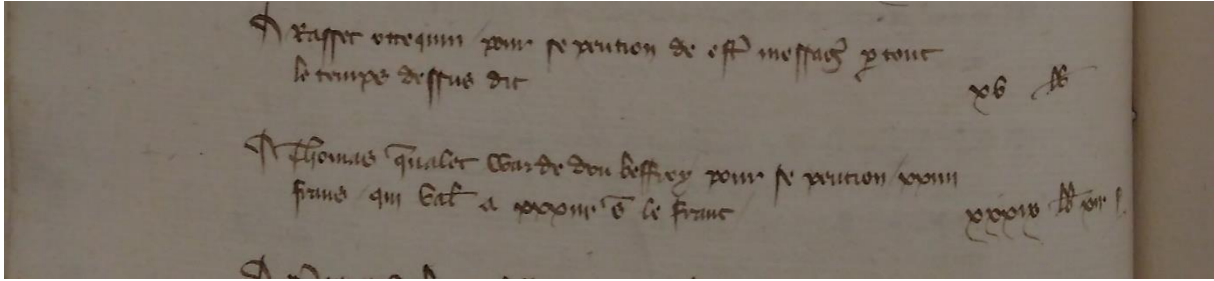 A Rasset ottequin pour se pention de estre messag p tout
le temps dessus dit
xv lb
A Thomas qvalet Warde dou beffrey pour se pention xxiiii
frans qui val a xxxiii s le franc
lb xii s